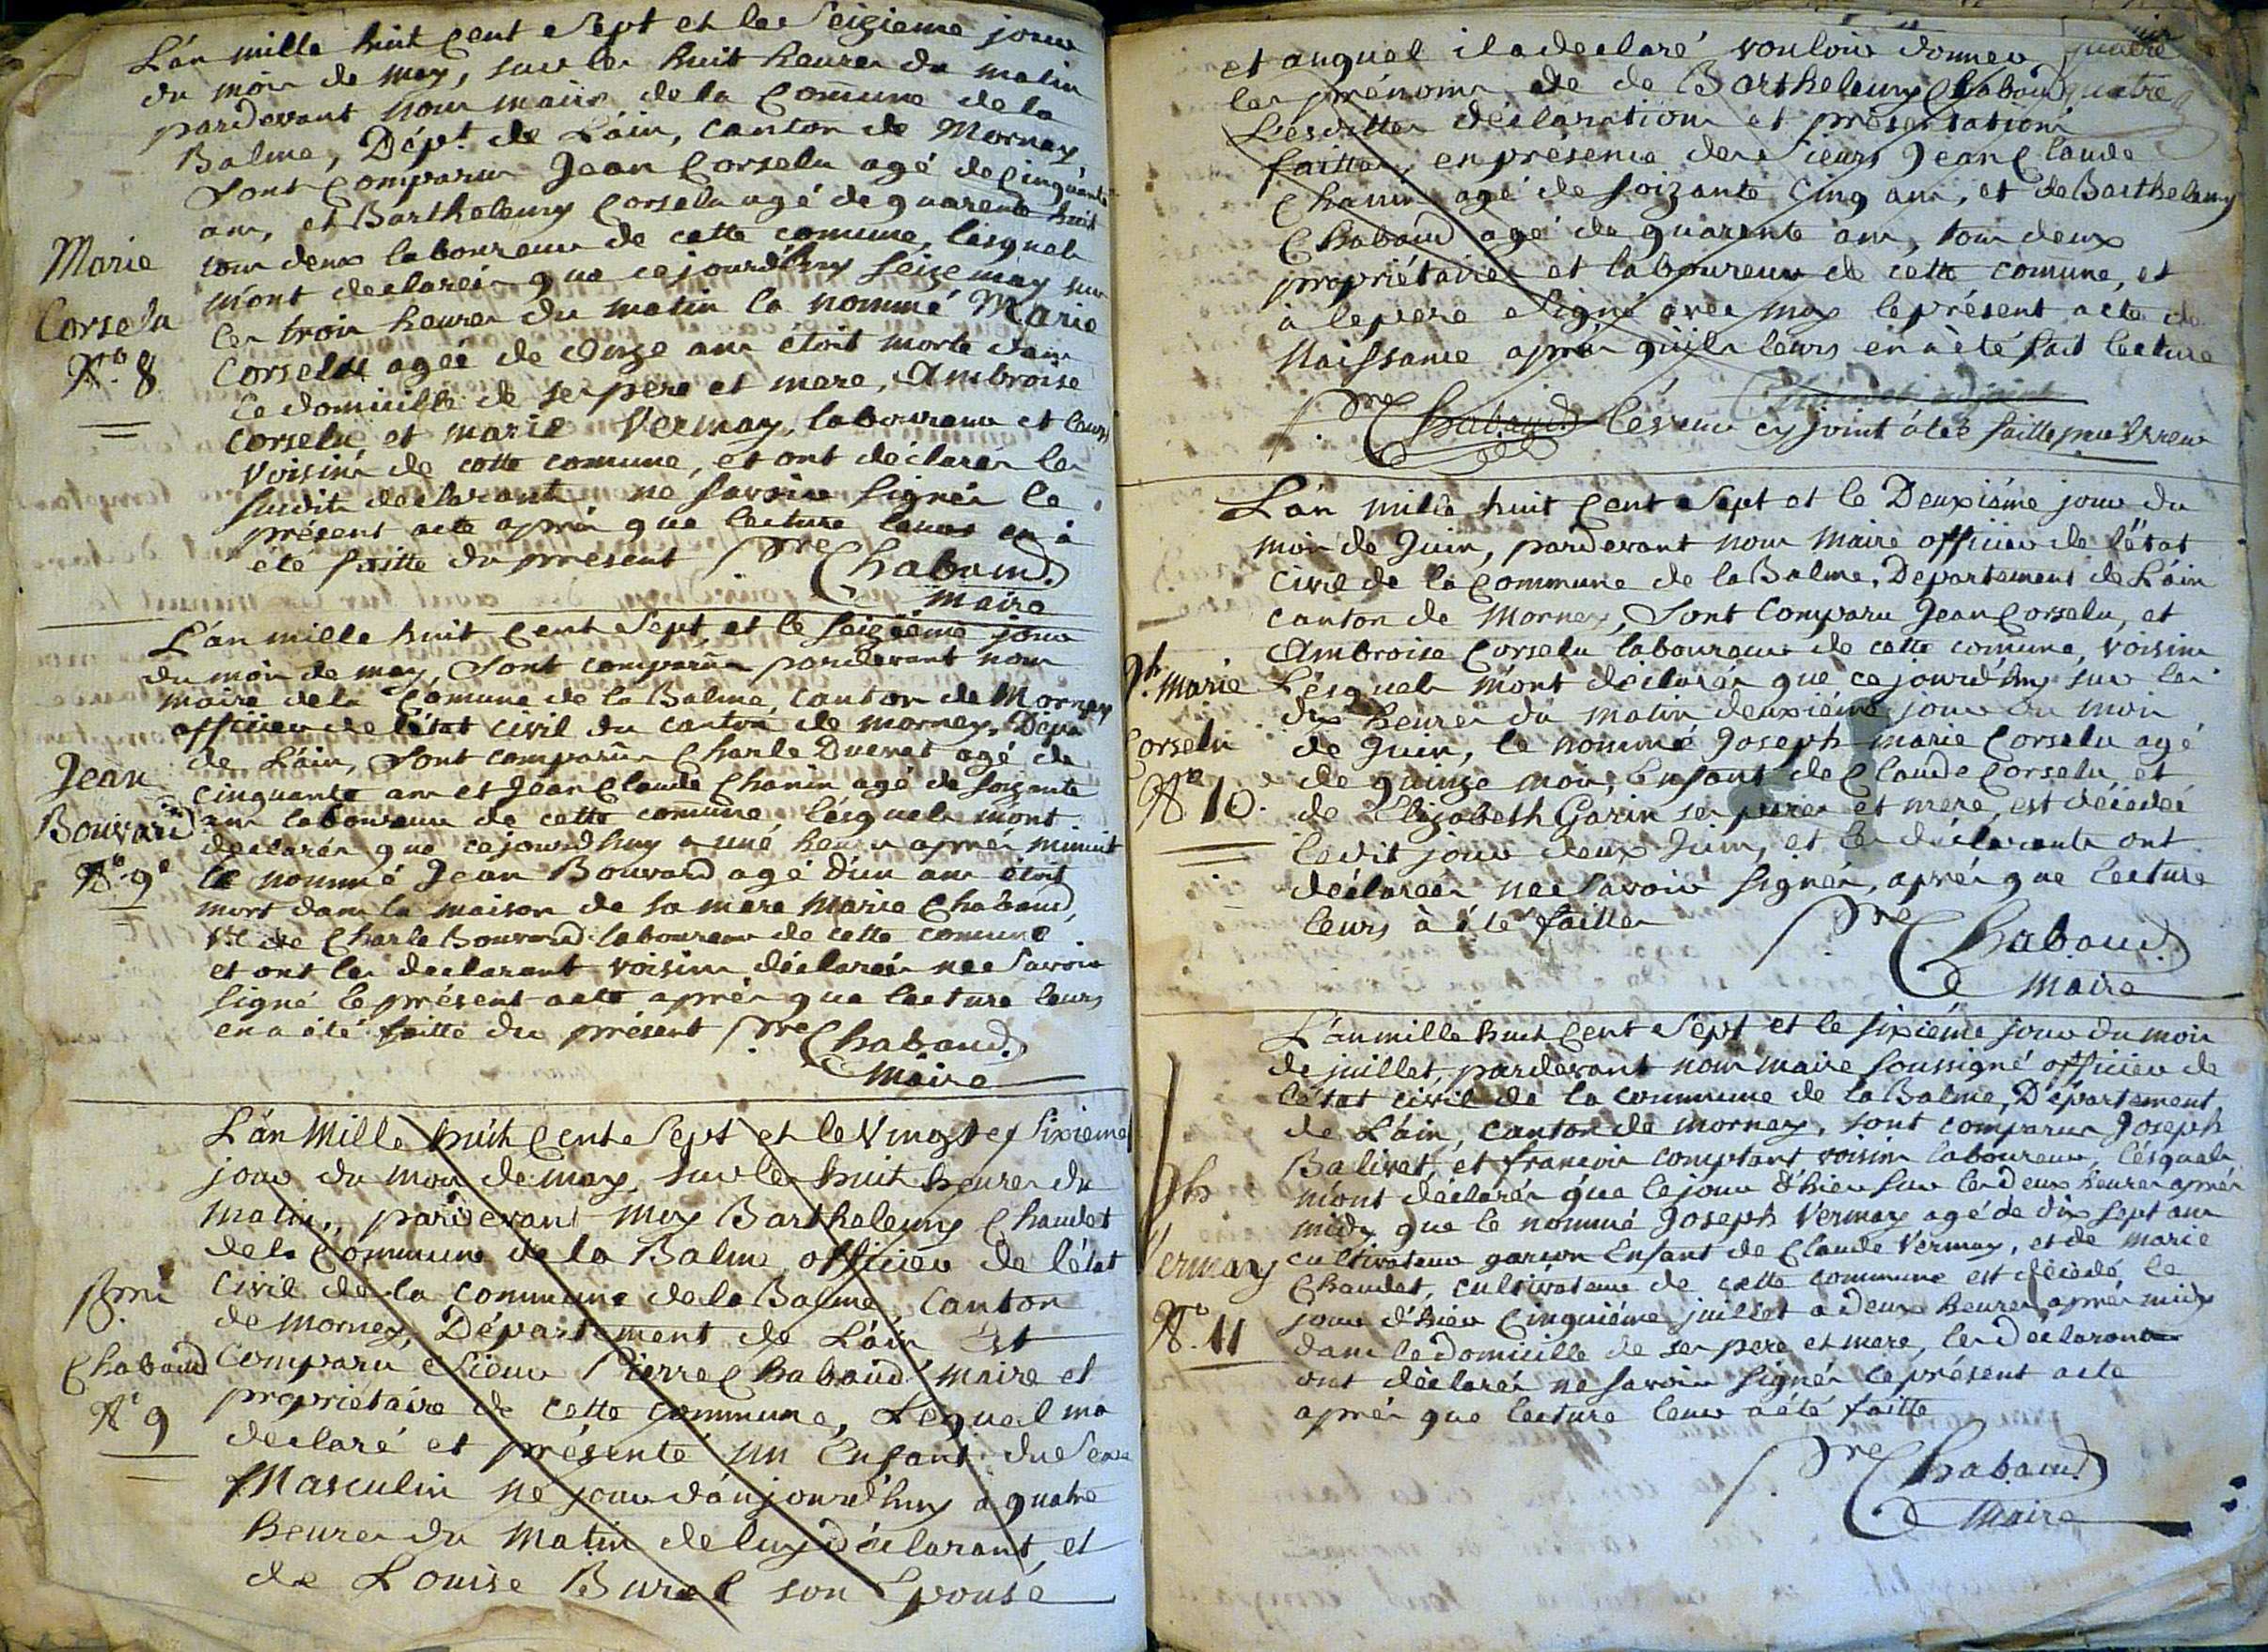 L'an mille huit Cent Sept et les Seizieme jour
du mois de may, sur les huit heures du matin
pardevant nous maire de la Comune de la
Balme, Dépt. de L'ain, Canton de Mornay
Sont Comparus Jean Corselu agé de Cinquante
ans, et Barthelemy Corselu agé de quarente huit
tous deux laboureur de cette comune, lesquels
m'ont declarés que cejourd'huy Seize may sur
les trois heures du matin la nommé Marie
Corselu agée de onze ans étoit morte dans
Le domicille de ses pere et mere, Ambroise
Corselu et marie Vermay, laboureur et leurs
Voisins de cette comune, et ont déclarés les
susdits declarants ne savoir signér le
présent acte aprés que lecture leurs en à
été faitte du present Pre Chabaud
Maire
Marie
Corselu
No. 8
L'an mille huit Cent Sept, et le Seizieme jour
du mois de may, Sont comparus pardevant nous
maire de la Comune de la Balme, canton de Mornay
officier de l'état civil du canton de mornay, Depa
de L'ain, Sont comparus Charle Ducret agé de
cinquante ans et Jean Claude Chanin agé de soizante
ans laboureur de cette comune, lésquels m'ont
declarés que cejourdhuy a une heure aprés minuit
le nommé Jean Bouvard agé d'un ans étoit
mort dans la maison de sa mere Marie Chabaud,
Ve. de Charle Bouvard laboureur de cette comune
et ont les declarant voisins déclarés ne Savoir
signé le présent acte aprés que lecture leurs
en a été faitte du présent Pre Chabaud
Maire
Jean
Bouvard
No. 9e
L'an Mille huit Cent Sept et le Vingt et Sixieme
jour du mois de may, sur les huit heures du
matin, pardevant moy Barthelemy Chaudet
de la Commune de la Balme officier de l'état
Civil de la Commune de la Balme, Canton
de Mornay, Département de L'ain Est
Comparu Sieur Pierre Chabaud maire et
propriétaire de cette Commune, Lequel ma
declaré et présenté un Enfant du Sexe
Masculin né jour d'aujourd'huy a quatre
heures du Matin de luy déclarant, et
de Louise Burel son Epouse
Chabaud
No 9
et auquel il a declaré vouloir donner
les prénoms de de Barthelemy Chabaud quatre
Lesdittes déclaration et présentation
faittes, en présence des Sieurs Jean Claude
Chanin agé de soizante Cinq ans, et de Barthelemy
Chabaud agé de quarente ans, tous deux
propriétaires et laboureur de cette comune, et
à le pere Signé avec moy le présent acte de
Naissance aprés qu'ils leurs en à été fait lecture
Pre Chabaud
L'an mille huit Cent Sept et le Deuxiéme jour du
mois de Juin, pardevant nous Maire officier de l'état
Civil de la Commune de la Balme, Departement de L'ain
Canton de Mornay, Sont Comparu Jean Corselu, et
Ambroise Corselu laboureur de cette comune, voisins
Lésquels m'ont déclarés que ce jourd'huy sur les
dix heures du matin deuxiéme jour du mois
de Juin, le nommé Joseph marie Corselu agé
de quinze mois, Enfant de Claude Corselu, et
de Elizabeth Garin ses peres et mere, est décédée
ledit jour deux Juin, et les déclarants ont
déclarés ne Savoir signér, aprés que lecture
leurs à été faittes
Pre Chabaud
Maire
Jh. Marie
Corselu
No 10.
L'an mille huit Cent Sept et le sixiéme jour du mois
de juillet, pardevant nous maire soussigné officier de
l'état civil de la commune de la Balme, Département
de L'ain, canton de mornay, sont comparus Joseph
Balivet, et francois comptant voisins laboureur, lésquels
m'ont déclarés que le jour d'hier sur les deux heures aprés
midy que le nommé Joseph Vermay agé de dix Sept ans
cultivateur garçon Enfant de Claude Vermay, et de marie
Chaudet, cultivateur de cette commune est décédé le
jour d'hier Cinquiéme juillet a deux heures aprés midy
dans le Domicille de ses pere et mere, les Déclarants
ont déclarés ne savoir signér le présent acte
aprés que lecture leur à été faitte
Pre Chabaud
Maire
Jh
Vermay
No. 11